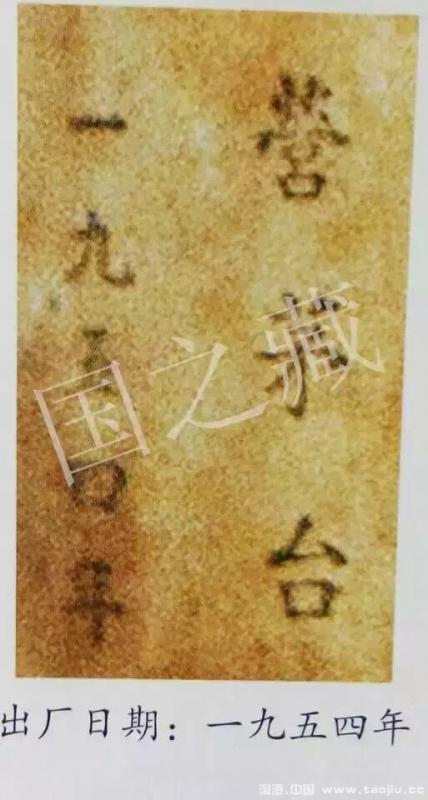 营台
一九五四年
国之藏
出厂日期：一九五四年
淘酒.中国 www.taojiu.cc